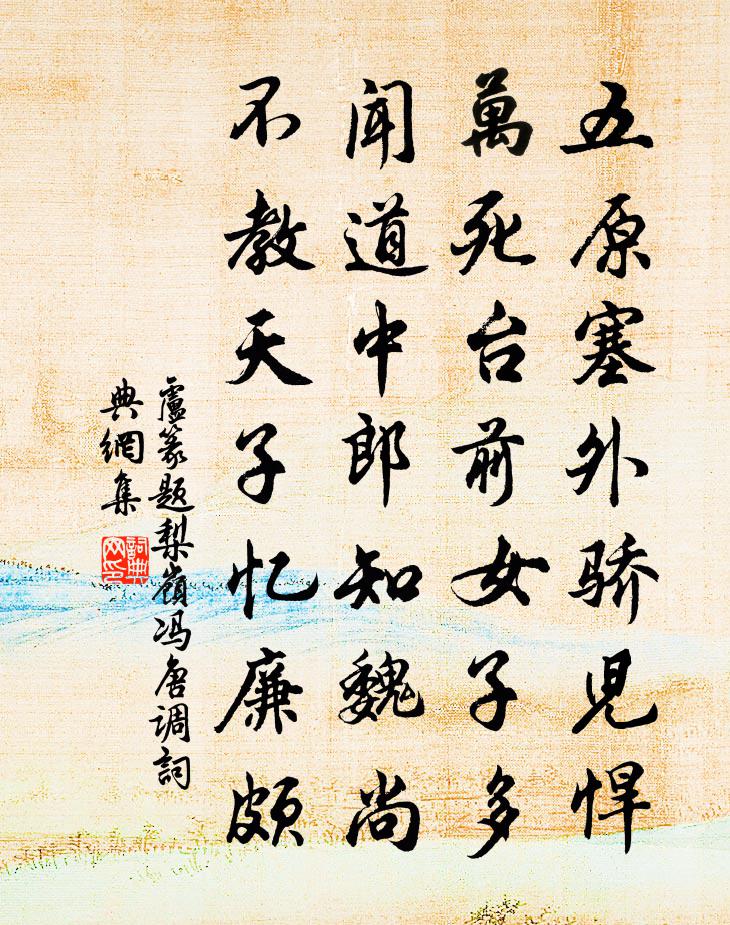 五原塞外骄児悍
萬死台前女子多
闻道中郎知魏尚
不教天子忆廉頗
盧篆题梨嶺冯唐调詞
典網集
詞典
网印